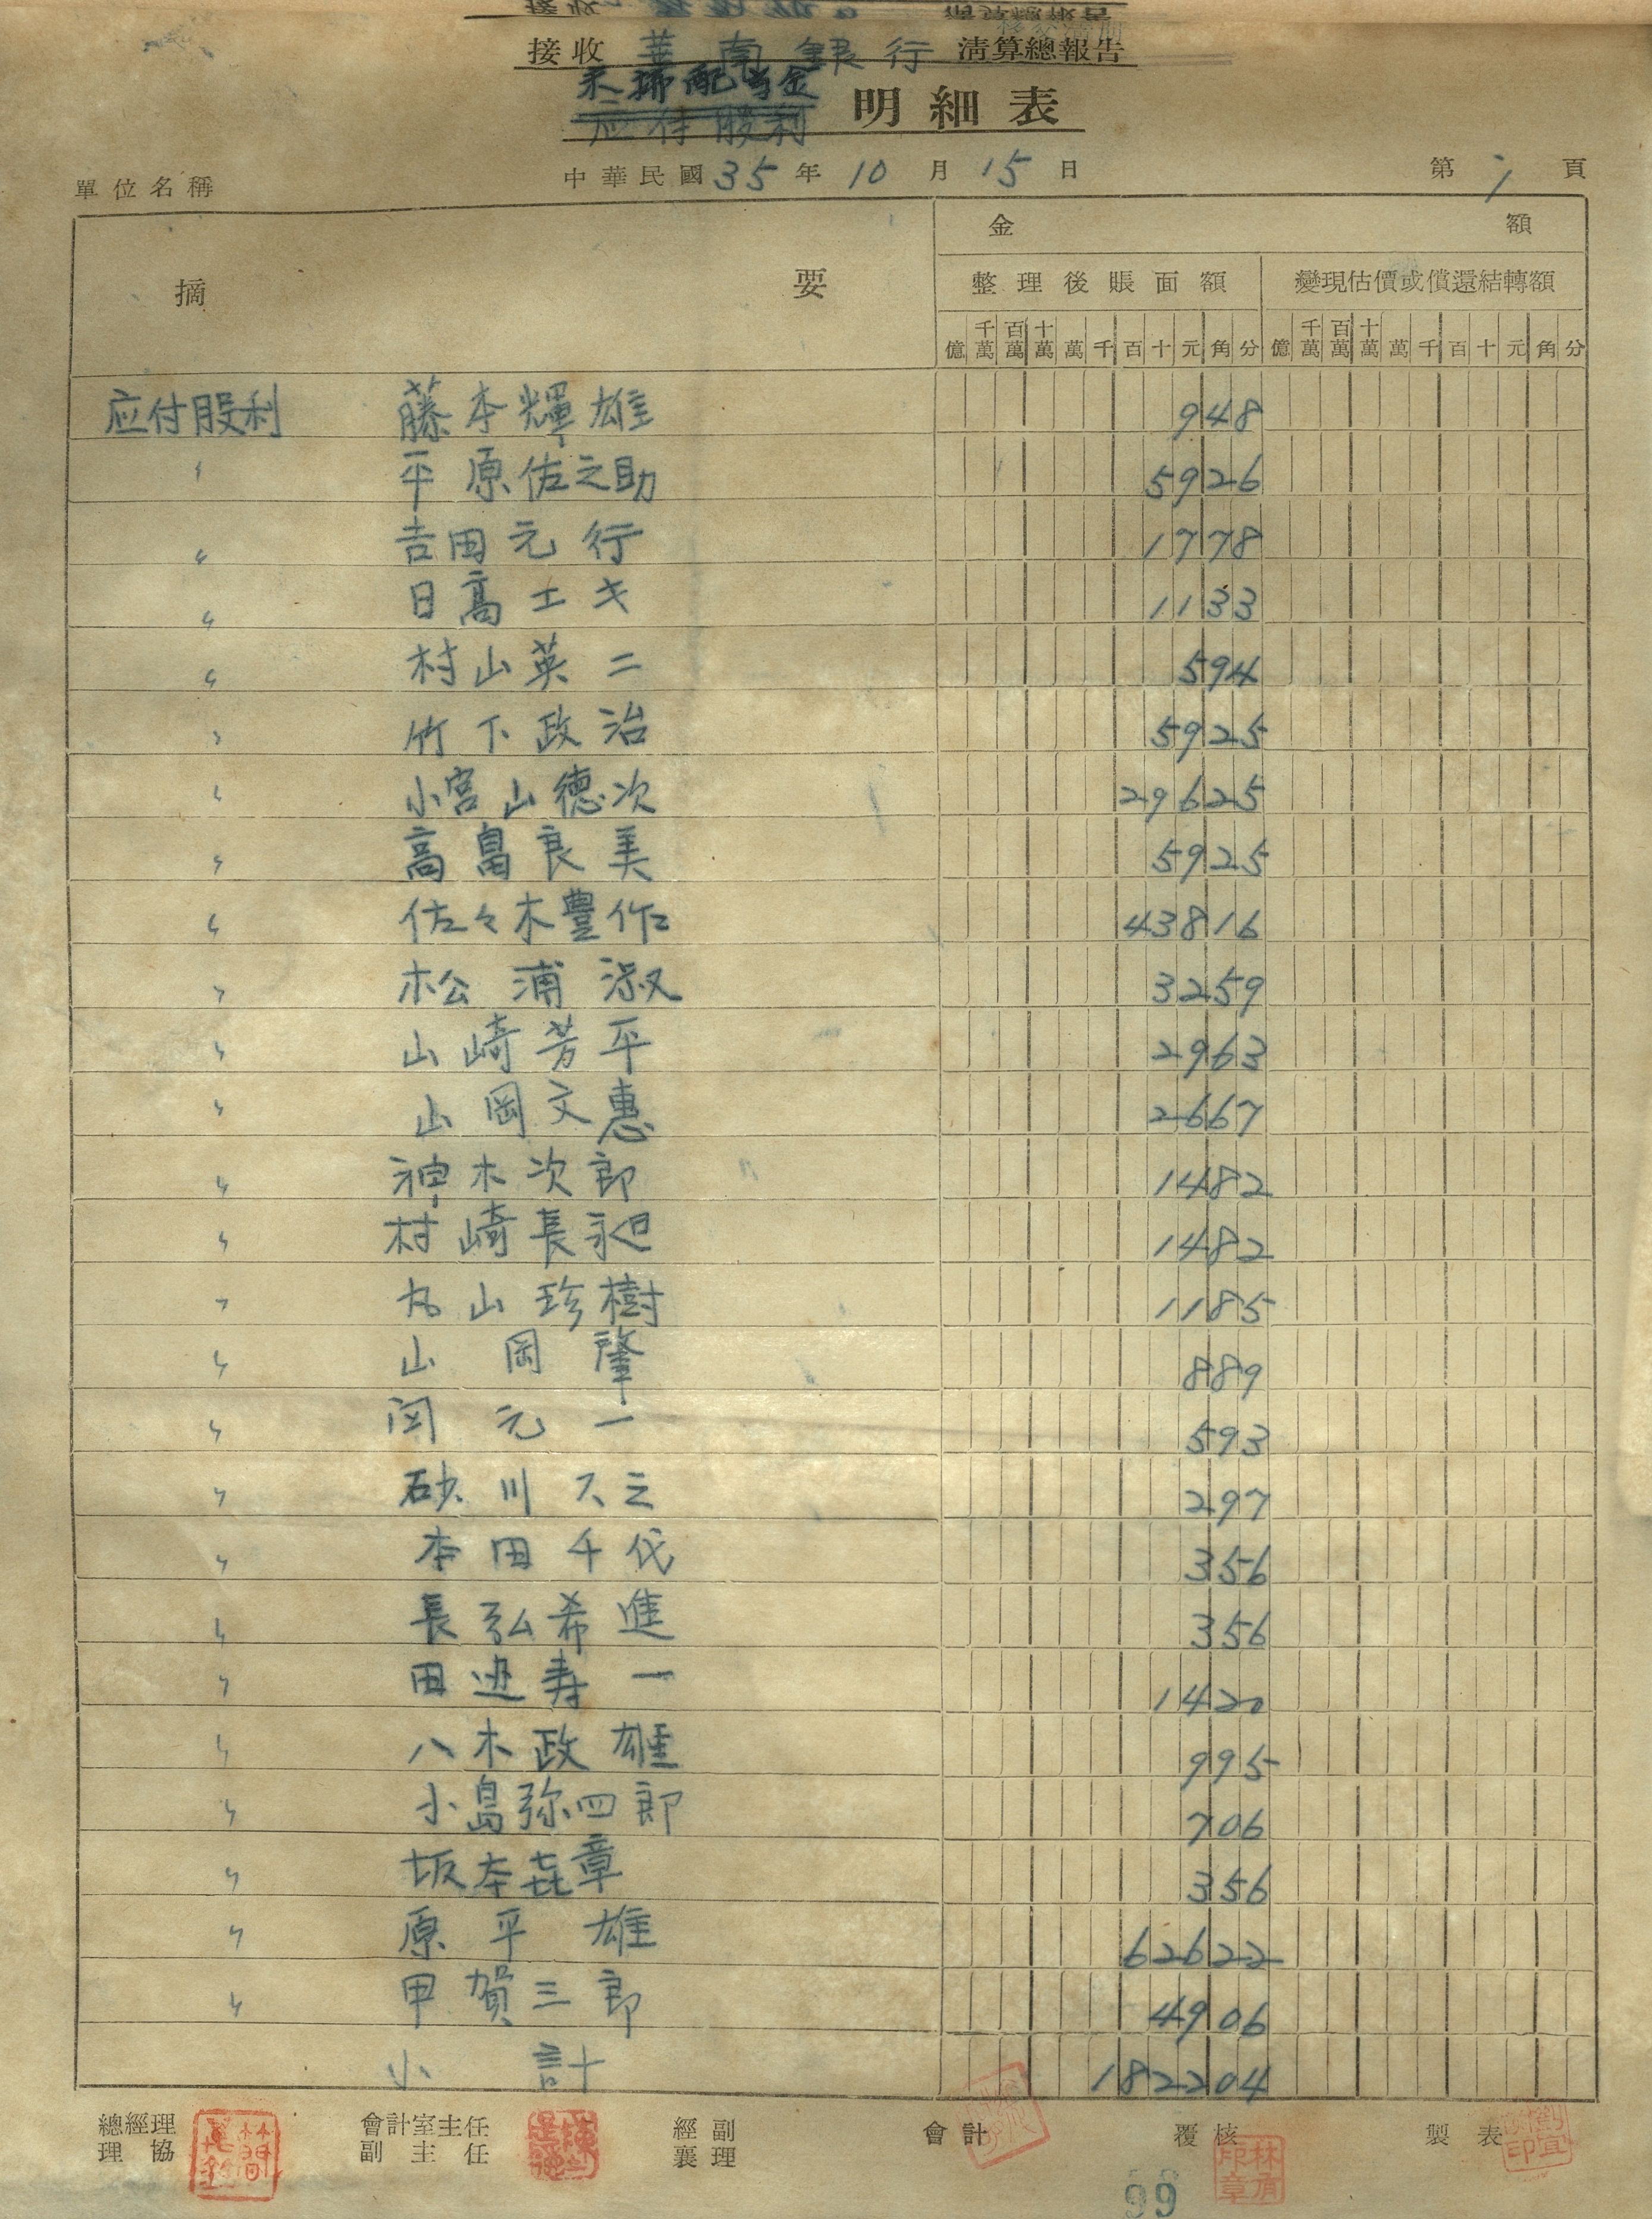 接收 華南銀行 清算總報告
未拂配当金
应付股利 明細表
單位名稱 中華民國35年10月15日 第1頁
摘 要 金 額
整理後賬面額 變現估價或償還結轉額
億 千萬 百萬 十萬 萬 千 百 十 元 角 分 億 千萬 百萬 十萬 萬 千 百 十 元 角 分
应付股利 藤本輝雄 948
〃 平原佐之助 5926
〃 吉田元行 1778
〃 日高士キ 1133
〃 村山英二 594
〃 竹下政治 5925
〃 小宮山德次 29625
〃 高畠良美 5925
〃 佐々木豊作 43816
〃 松浦淑 3259
〃 山崎芳平 2963
〃 山岡文惠 2667
〃 神木次郎 1482
〃 村崎長昶 1482
〃 丸山珍樹 1185
〃 山岡肇 889
〃 関元一 593
〃 砂川久三 297
〃 本田千代 356
〃 長弘希進 356
〃 田辺寿一 1420
〃 八木政雄 995
〃 小島弥四郎 706
〃 坂本㐂章 356
〃 原平雄 62622
〃 甲賀三郎 4906
小計 182204
總經理 會計室主任 經副 會計 覆核 製表
理協 副主任 襄理
99